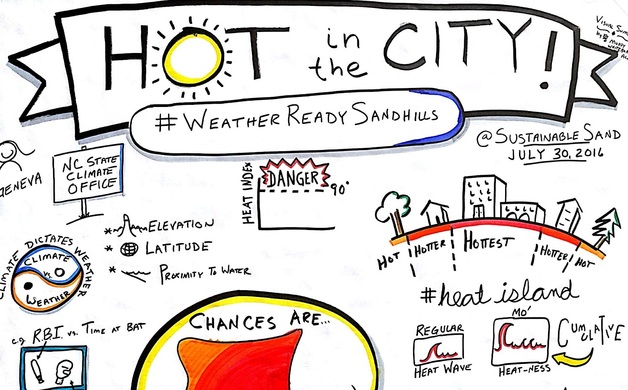 HOT in the CITY!
Visual Sum
by
#WEATHERREADYSANDHILLS
@SUSTAINABLESAND
JULY 30, 2016
GENEVA
NC STATE
CLIMATE
OFFICE
* ELEVATION
* LATITUDE
* PROXIMITY TO WATER
HEAT INDEX
DANGER
90°
HOT HOTTER HOTTEST HOTTER HOT
#heat island
CLIMATE DICTATES WEATHER
CLIMATE
vs.
WEATHER
e.g. R.B.I. vs. TIME AT BAT
CHANCES ARE...
REGULAR
HEAT WAVE
MO'
HEAT-NESS
CUMULATIVE